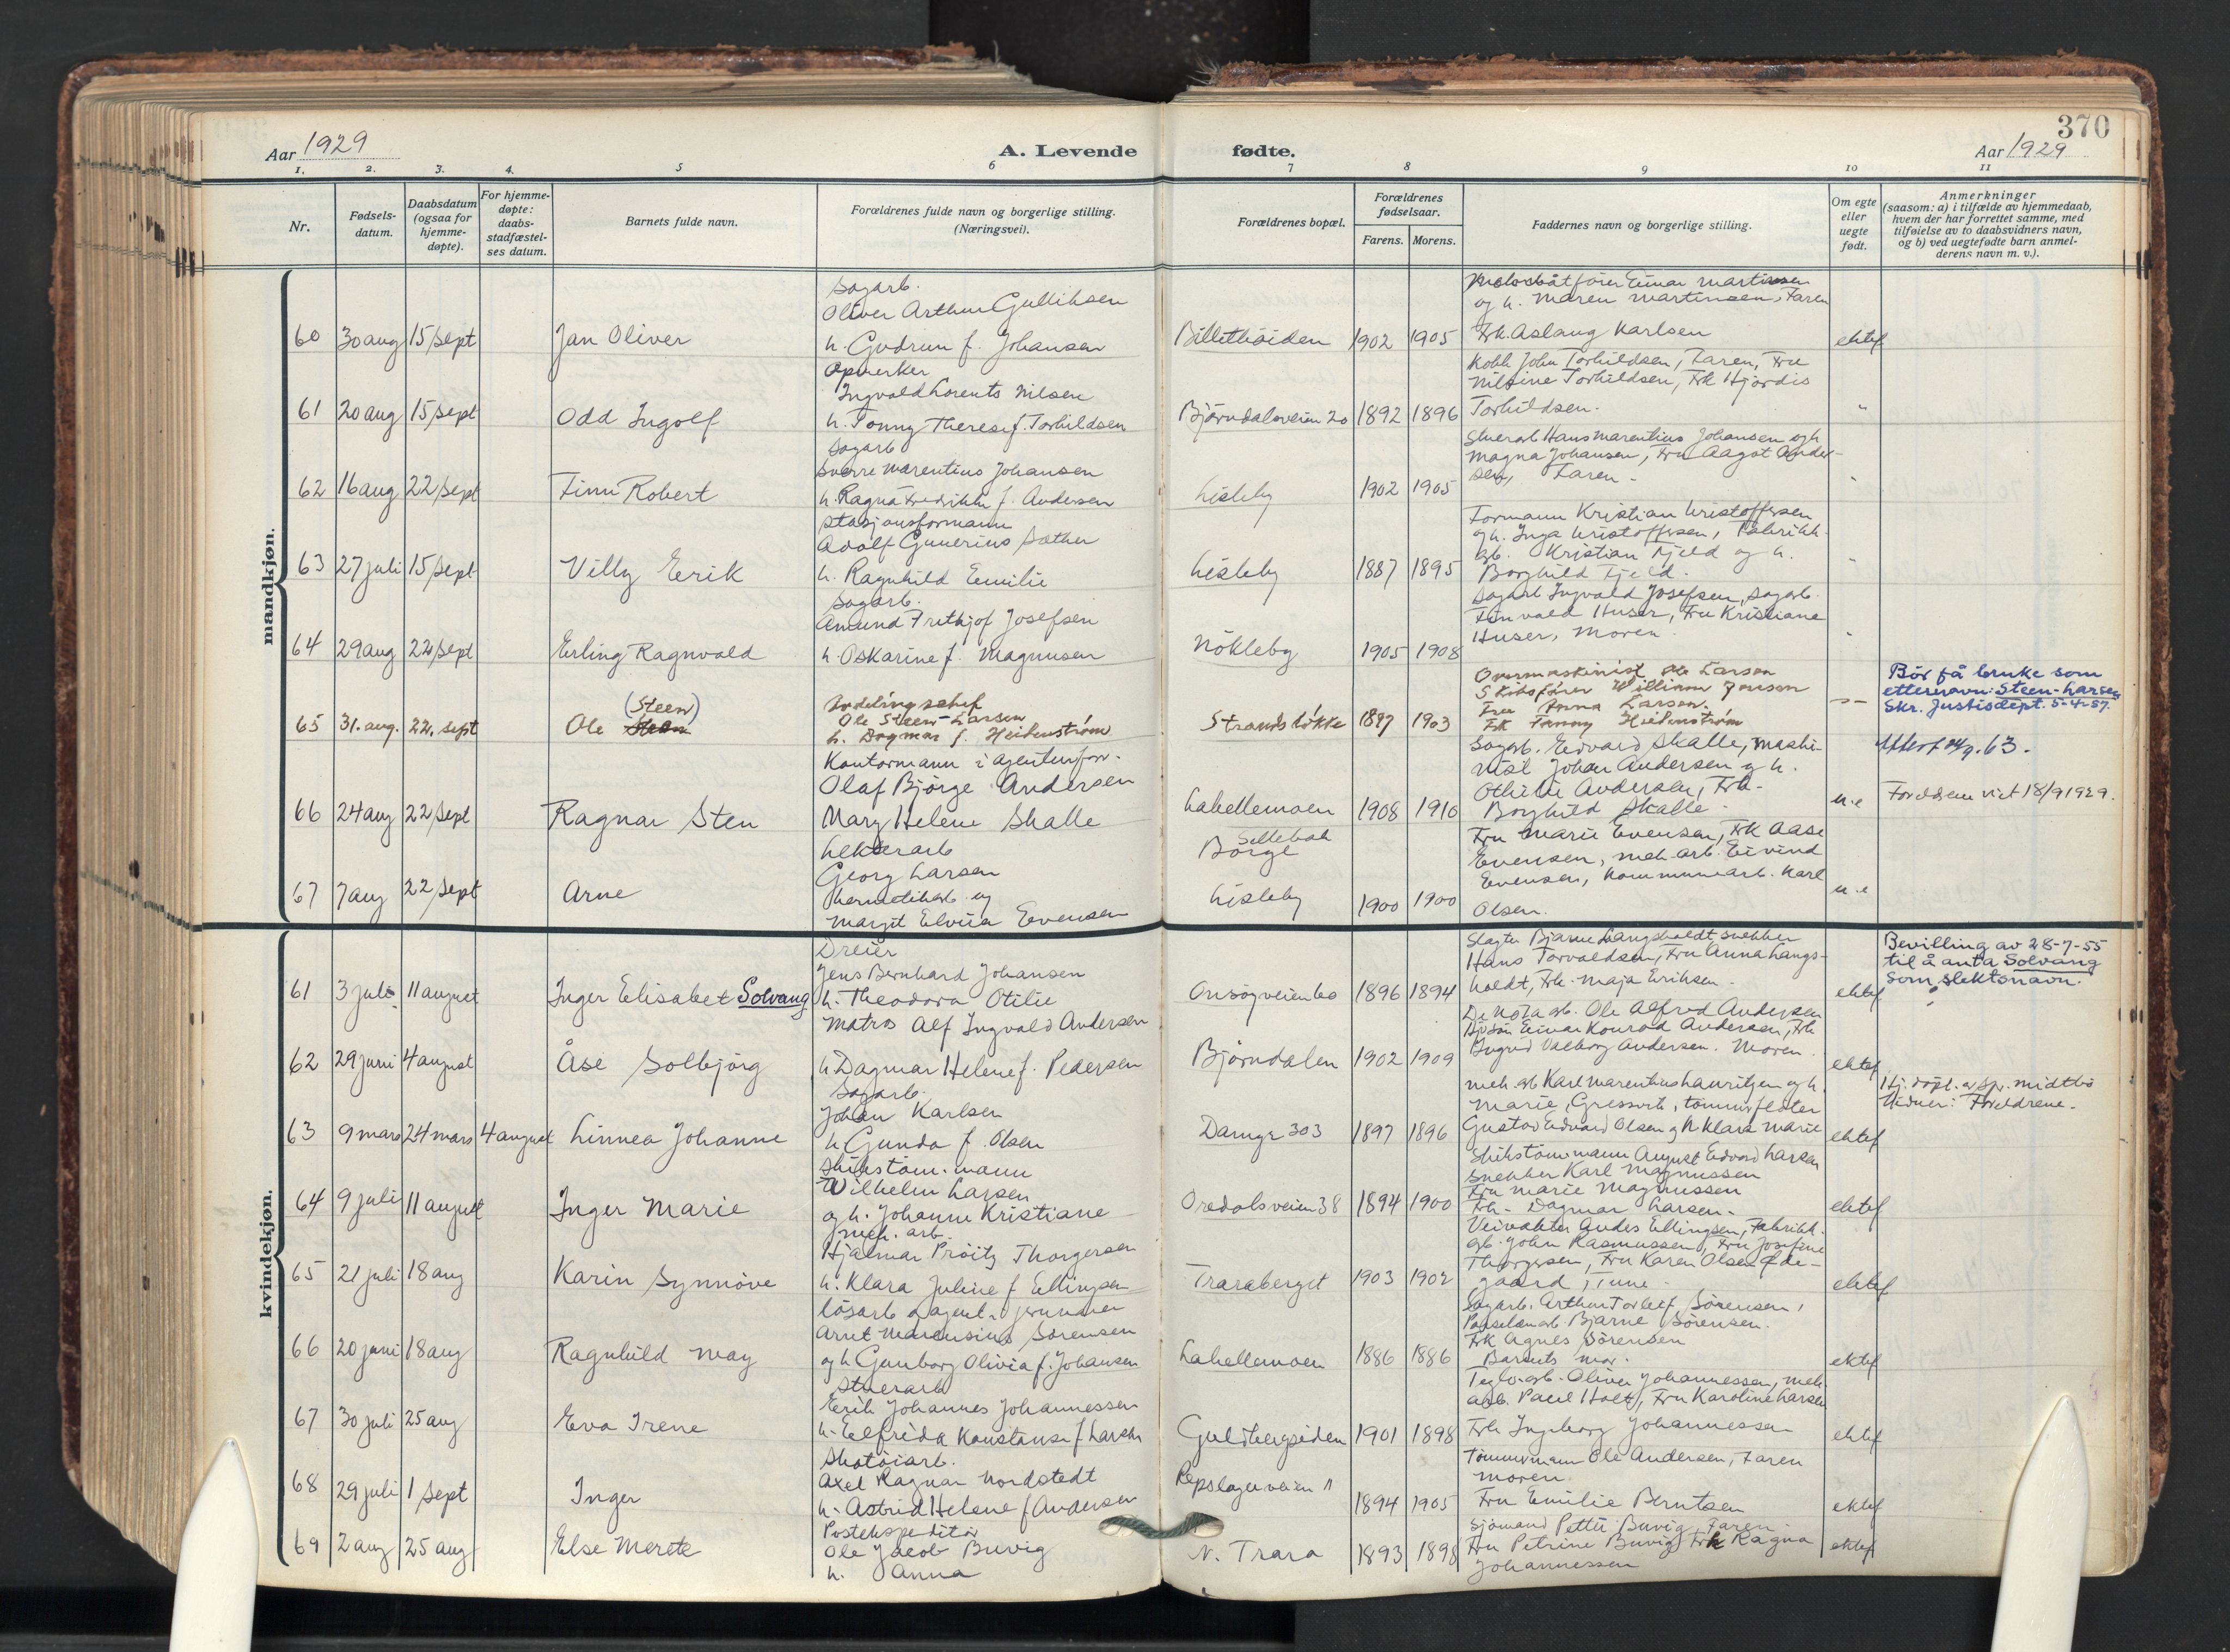 370
Aar 1929
A. Levende
fødte.
Aar 1929
1. 2. 3. 4. 5 6 7 8 9 10 11
Nr.
Fødsels-
datum.
Daabsdatum
(ogsaa for
hjemme-
døpte).
For hjemme-
døpte:
daabs-
stadfæstel-
ses datum.
Barnets fulde navn.
Forældrenes fulde navn og borgerlige stilling.
(Næringsvei).
Forældrenes bopæl.
Forældrenes
fødselsaar.
Farens. Morens.
Faddernes navn og borgerlige stilling.
Om egte
eller
uegte
født.
Anmerkninger
(saasom: a) i tilfælde av hjemmedaab,
hvem der har forrettet samme, med
tilføielse av to daabsvidners navn,
og b) ved uegtefødte barn anmel-
derens navn m. v.).
mandkjøn.
60 30 aug 15/sept Jan Oliver
Sagarb.
Oliver Arthur Gulliksen
h. Gudrun f. Johansen
1902 1905
Einar Martinsen
og h. Maren Martinsen, Faren
Frk. Aslaug Karlsen
ektef
61 20 aug 15/sept Odd Ingolf
Opmerker
Ingvald Lorents Nilsen
h. Fonny Therese f. Torhildsen
Björndalsveien 20 1892 1896
John Torhildsen, Faren, Fru
Nilsine Torhildsen, Frk Hjördis
Torhildsen.
"
62 16 aug 22/sept Finn Robert
Sagarb
Sverre Marentius Johansen
h. Ragna Fredrikke f. Andersen
Lisleby 1902 1905
Stuerarb Hans Marentius Johansen og h
Magna Johansen, Fru Aagot Ander-
sen, Faren -
"
63 27 juli 15/sept Villy Erik
Stasjonsformann
Adolf Gunerius Sæther
h. Ragnhild Emilie
Lisleby 1887 1895
Formann Kristian Kristoffersen
og h. Inga Kristoffersen, Fabrikk-
arb. Kristian Fjeld og h.
Borghild Fjeld.
"
64 29 aug 22/sept Erling Ragnvald
Sagarb.
Amund Frithjof Josefsen
h. Oskarine f. Magnusen
Nökleby 1905 1908
Sagarb Ingvald Josefsen, sagarb.
Huser, Fru Kristiane
Huser, Moren
"
65 31. aug. 22. sept Ole (Steen) Steen
Avdelingschef
Ole Steen-Larsen
h. Dagmar f. Heidenstrøm
1897 1903
Overmaskinist Ole Larsen
Skibsfører William Jensen
Fru Anna Larsen.
Frk Fanny Heidenstrøm
- -
Bör få bruke som
etternavn: Steen-Larsen
Skr. Justisdept. 5-4-57.
66 24 aug 22/sept Ragnar Sten
Kontormann i agenturforr.
Olaf Björge Andersen
Mary Helene Skalle
Labellemoen 1908 1910
Sagarb. Edvard Skalle, maski-
nist Johan Andersen og h.
Othilie Andersen, Frk.
Borghild Skalle
u.e
Foreldrene viet 18/9 1929.
67 7 aug 22/sept Arne
Lekterarb
Georg Larsen
Hermetikarb. og
Margit Elvira Evensen
Sellebak
Borge
Lisleby 1900 1900
Fru Marie Evensen, Frk Aase
Evensen, mek. arb. Eivind
Evensen, kommunearb. Karl
Olsen.
u.e
kvindekjøn.
61 3 juli 11 august Inger Elisabet Solvang
Dreier
Jens Bernhard Johansen
h. Theodora Otilie
Onsöyveien 60 1896 1894
Slagter Bjarne Langsholdt snekker
Hans Torvaldsen, Fru Anna Langs-
holdt, Frk. Maja Eriksen.
ektef
Bevilling av 28-7-55
til å anta Solvang
som slektsnavn.
62 29 juni 4 august Åse Solbjørg
Matros Alf Ingvald Andersen
h Dagmar Helene f. Pedersen
Bjørndalen 1902 1909
De Nofa arb. Ole Alfred Andersen
Einar Konrad Andersen, Frk
Ingrid Valborg Andersen. Moren.
ektef
63 9 mars 24 mars 4 august Linnea Johanne
Sagarb.
Johan Karlsen
h Gunda f. Olsen
Damyr 303 1897 1896
mek. arb Karl Marentius Lauritzen og h.
Marie, Gressvik, tømmerfløter
Gustav Edvard Olsen og h Klara Marie
ektef
Hj. døpt av spr. Midtbö
Vidner: Foreldrene.
64 9 juli 11 august Inger Marie
Wilhelm Larsen
og h. Johanne Kristiane
Oredalsveien 38 1894 1900
August Edvard Larsen
Snekker Karl Magnussen
Fru Marie Magnussen
Frk. Dagmar Larsen.
ektef
65 21 juli 18 aug Karin Synnöve
mek. arb.
Hjalmar Pröitz Thorgersen
h. Klara Juline f Ellingsen
Traraberget 1903 1902
Veivokter Andes Ellingsen, Fabrikk.
arb. John Rasmussen, Fru Josefine
Thorgersen, Fru Karen Olsen Øde-
gaard, Tune -
ektef
66 20 juni 18 aug Ragnhild May
Arnt Marensius Sörensen
og h Gunborg Olivia f. Johansen
Labellemoen 1886 1886
Sagarb. Arthur Torleif Sörensen,
Porselenarb. Bjarne Sörensen.
Frk Agnes Sörensen
Barnets mor.
ektef
67 30 juli 25 aug Eva Irene
Stuerarb
Erik Johannes Johannessen
h. Elfrida Konstanse f Larsen
Guldbergsiden 1901 1898
Teglv. arb. Oliver Johannessen, mek.
arb. Paul Holt, Fru Karoline Larsen
Frk Ingeborg Johannessen
ektef
68 29 juli 1 sept Inger
Skotöiarb.
Axel Ragnar Nordstedt
h. Astrid Helene f Andersen
Repslagerveien 11 1894 1905
Tömmermann Ole Andersen, Faren
Moren.
Fru Emilie Berntsen
ektef
69 2 aug 25 aug Else Merete
Postekspeditör
Ole Jacob Buvig
h. Anna
N. Trara 1893 1898
Sjömand Petter Buvig, Faren
Fru Petrine Buvig Frk Ragna
Johannessen
ektef